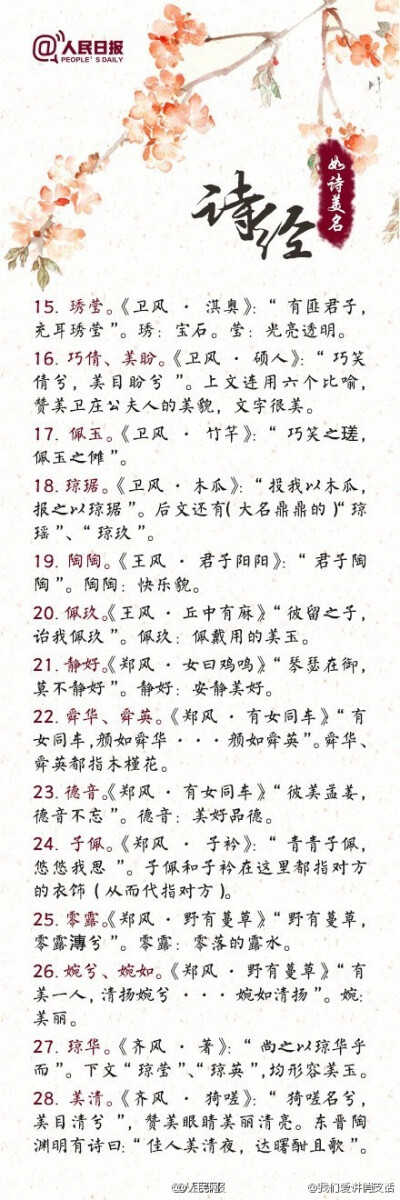 @人民日报
PEOPLE'S DAILY
如诗美名
诗经
15. 琇莹。《卫风 · 淇奥》：“有匪君子，
充耳琇莹”。琇：宝石。莹：光亮透明。
16. 巧倩、美盼。《卫风 · 硕人》：“巧笑
倩兮，美目盼兮 ”。上文连用六个比喻，
赞美卫庄公夫人的美貌，文字很美。
17. 佩玉。《卫风 · 竹竿》：“ 巧笑之瑳，
佩玉之傩 ”。
18. 琼琚。《卫风 · 木瓜》：“投我以木瓜，
报之以琼琚 ”。后文还有（大名鼎鼎的）“琼
瑶 ”、“ 琼玖 ”。
19. 陶陶。《王风 · 君子阳阳》：“ 君子陶
陶 ”。陶陶：快乐貌。
20. 佩玖。《王风 · 丘中有麻》“彼留之子，
诒我佩玖 ”。佩玖：佩戴用的美玉。
21. 静好。《郑风 · 女曰鸡鸣》“ 琴瑟在御，
莫不静好 ”。静好：安静美好。
22. 舜华、舜英。《郑风 · 有女同车》“有
女同车，颜如舜华 · · · 颜如舜英 ”。舜华、
舜英都指木槿花。
23. 德音。《郑风 · 有女同车》“彼美孟姜，
德音不忘 ”。德音：美好品德。
24. 子佩。《郑风 · 子衿》：“ 青青子佩，
悠悠我思 ”。子佩和子衿在这里都指对方
的衣饰（从而代指对方）。
25. 零露。《郑风 · 野有蔓草》“野有蔓草，
零露漙兮 ”。零露：零落的露水。
26. 婉兮、婉如。《郑风 · 野有蔓草》“有
美一人，清扬婉兮 · · · 婉如清扬 ”。婉：
美丽。
27. 琼华。《齐风 · 著》：“ 尚之以琼华乎
而 ”。下文“ 琼莹 ”、“琼英 ”，均形容美玉。
28. 美清。《齐风 · 猗嗟》：“ 猗嗟名兮，
美目清兮 ”，赞美眼睛美丽清亮。东晋陶
渊明有诗曰：“佳人美清夜，达曙酣且歌 ”。
@人民网
@我们爱讲俏皮话